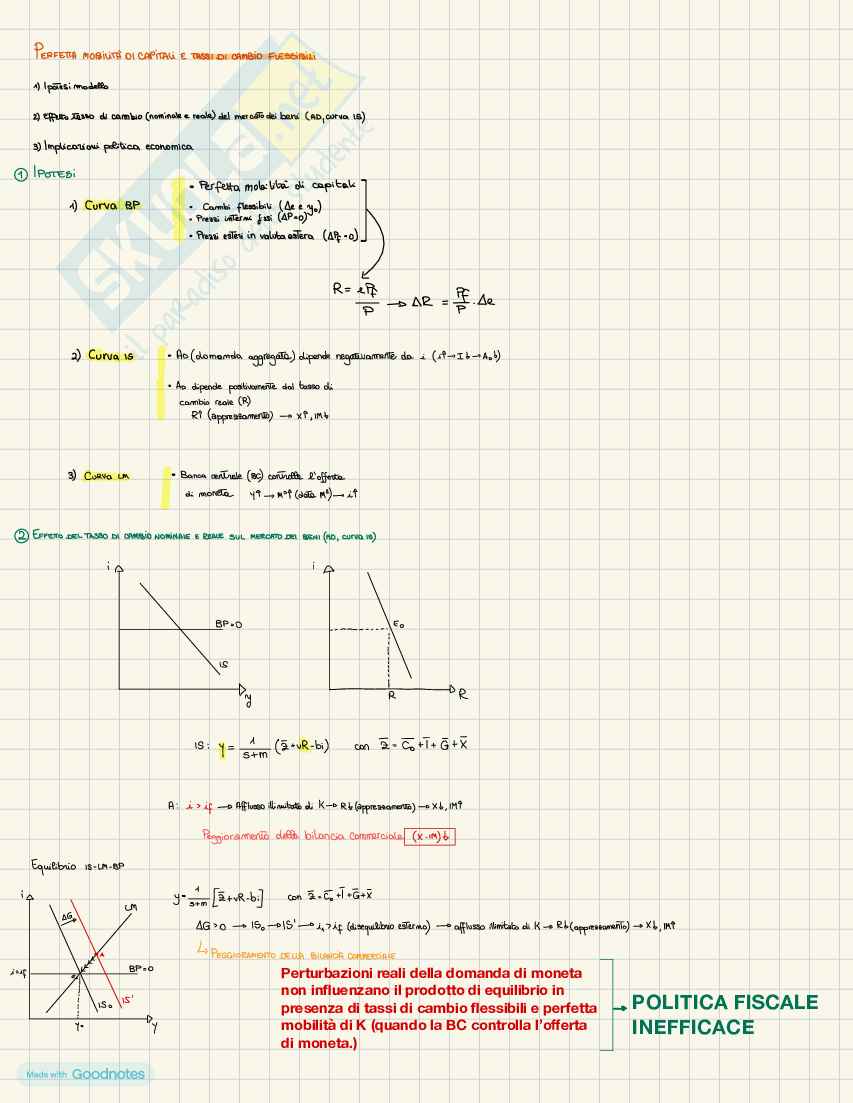 PERFETTA MOBILITÀ DI CAPITALI E TASSI DI CAMBIO FLESSIBILI
1) Ipotesi modello
2) effetto tasso di cambio (nominale e reale) del mercato dei beni (AD, curva IS)
3) Implicazioni politica economica
① IPOTESI
1) Curva BP
• Perfetta mobilità di capitali
• Cambi flessibili (Δe e y₀)
• Prezzi interni fissi (ΔP=0)
• Prezzi esteri in valuta estera (ΔPf=0)
R = ePf/P → ΔR = Pf/P · Δe
2) Curva IS
• AD (domanda aggregata) dipende negativamente da i (i↑→I↓→AD↓)
• AD dipende positivamente dal tasso di
cambio reale (R)
R↑ (apprezzamento) → X↑, IM↓
3) CURVA LM
• Banca centrale (BC) controlla l'offerta
di moneta y↑ → Mᴰ↑ (data Mˢ) → i↑
② EFFETTO DEL TASSO DI CAMBIO NOMINALE E REALE SUL MERCATO DEI BENI (AD, CURVA IS)
i
BP=0
IS
y
i
E₀
R
R
IS: y = 1/(s+m) (z̄+vR-bi) con z̄ = C̄₀+Ī+Ḡ+X̄
A: i > if → Afflusso illimitato di K → R↓ (apprezzamento) → X↓, IM↑
Peggioramento della bilancia commerciale (X-IM)↓
Equilibrio IS-LM-BP
i
ΔG
LM
A
i=if
BP=0
IS₀
IS'
y₀
y
y = 1/(s+m) [z̄+vR-bi] con z̄ = C̄₀+Ī+Ḡ+X̄
ΔG>0 → IS₀ → IS' → i₁ > if (disequilibrio esterno) → afflusso illimitato di K → R↓ (apprezzamento) → X↓, IM↑
↳ PEGGIORAMENTO DELLA BILANCIA COMMERCIALE
Perturbazioni reali della domanda di moneta
non influenzano il prodotto di equilibrio in
presenza di tassi di cambio flessibili e perfetta
mobilità di K (quando la BC controlla l'offerta
di moneta.)
POLITICA FISCALE
INEFFICACE
SKUOLA.net
il paradiso dello studente
Made with Goodnotes